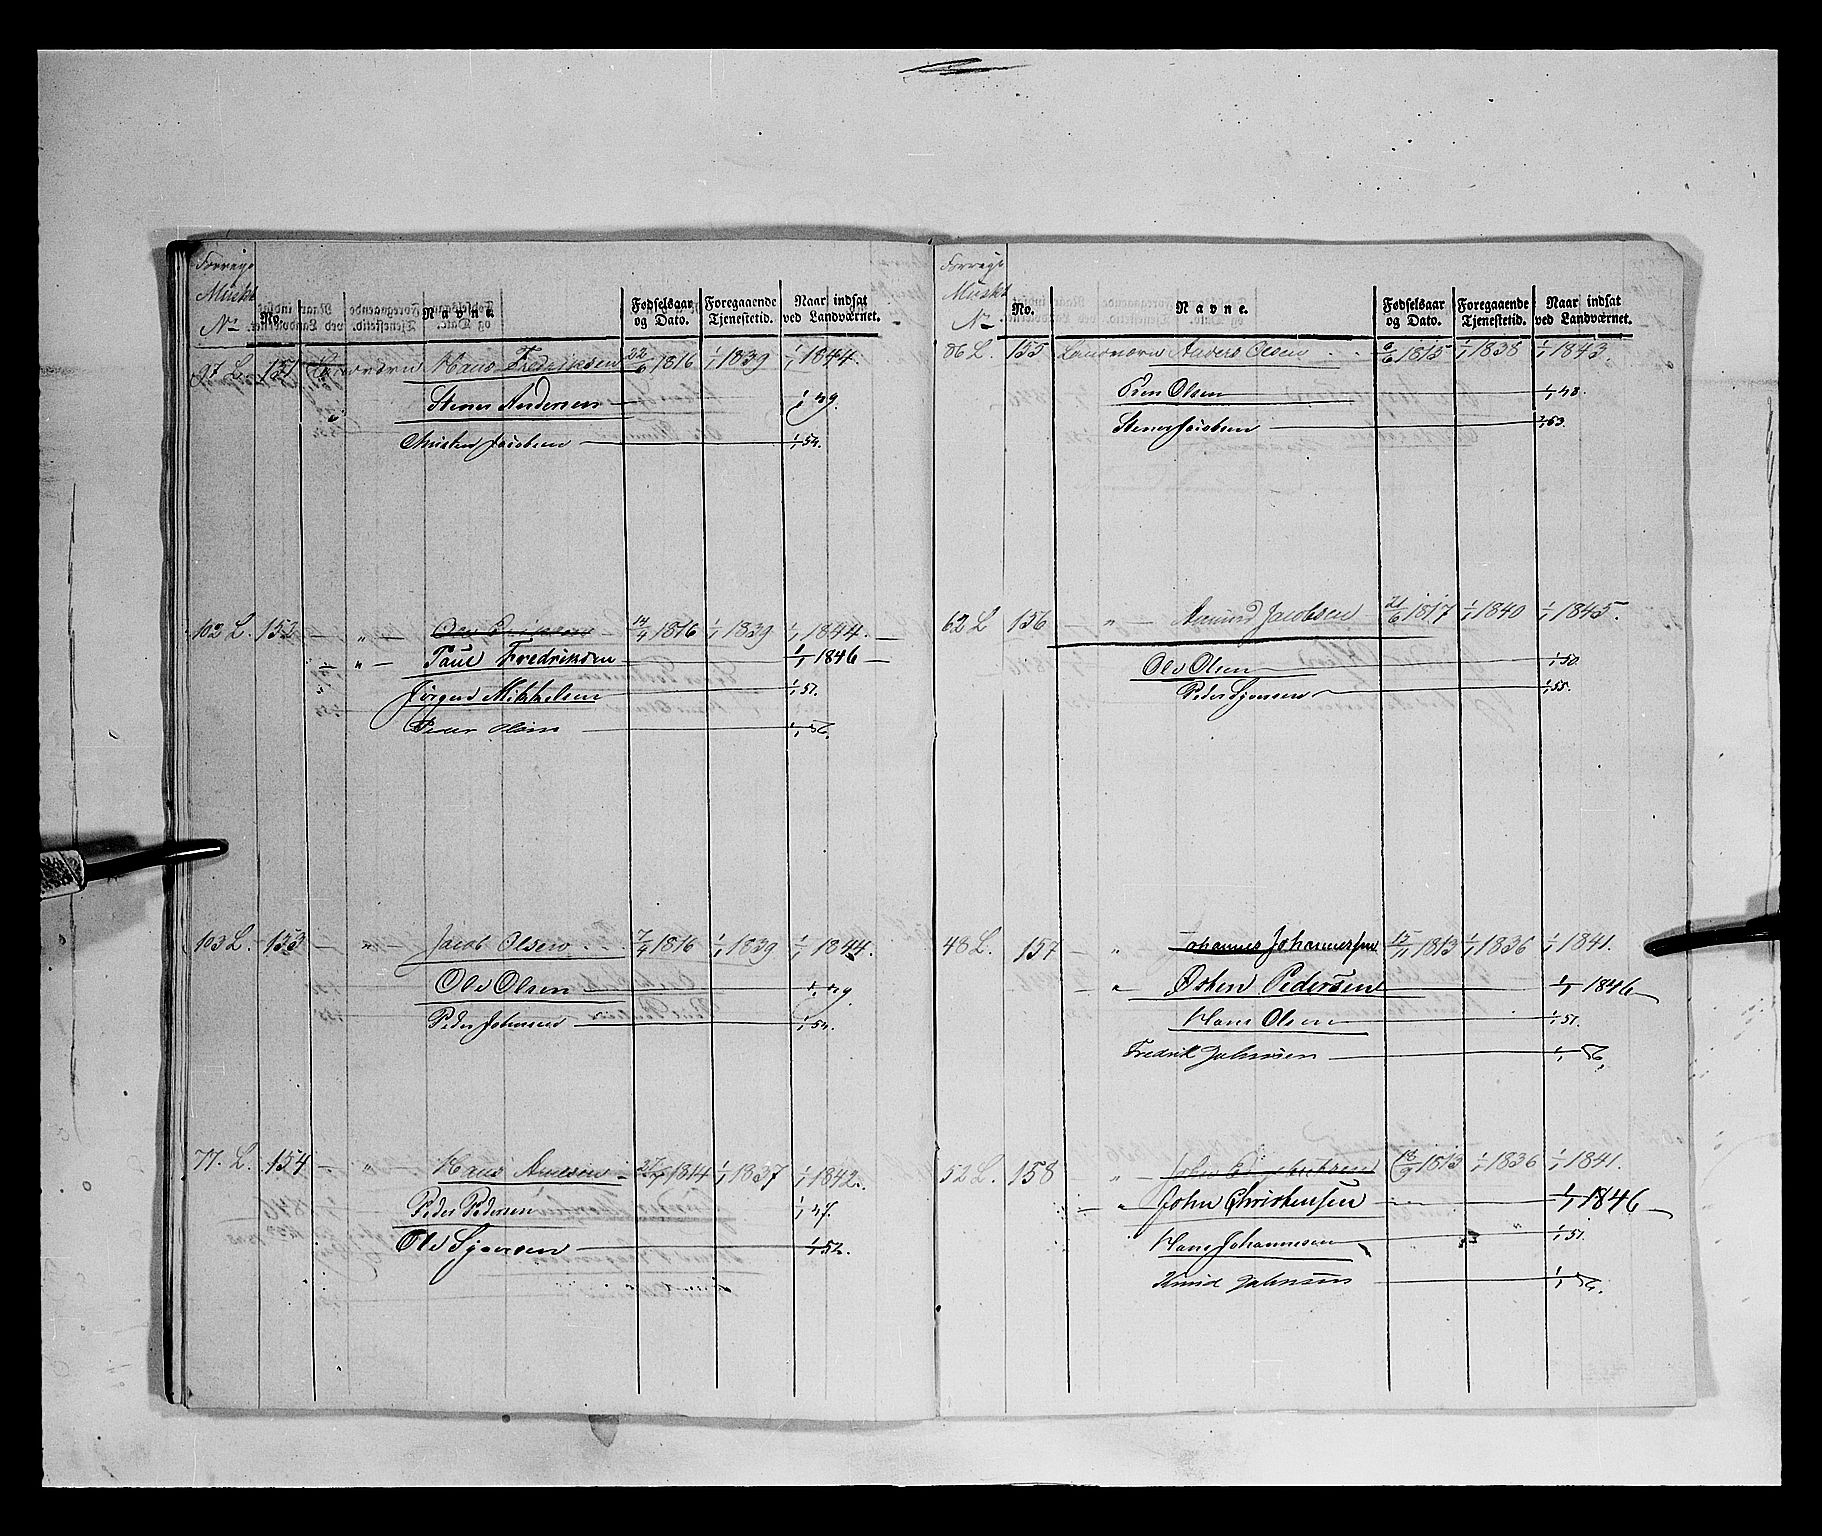 Forrige
Muskt
No
No. Navne. Fødselsaar og Dato. Foregaaende Tjenestetid. Naar indsat ved Landværnet.
97 L. 151 Landværn Hans Fredriksen 22/6 1816 1/1 1839 1/1 1844.
Stener Andersen 1/1 49.
Christen Jacobsen 1/1 54.
102 L. 152 - " - 1816 1/1 1839 1/1 1844.
" - Paul Fredriksen 1/1 1846
Jörgen Mikkelsen 1/1 51.
Peder Olsen 1/1 56.
103 L. 153 - " - Jacob Olsen 7/9 1816 1/1 1839 1/1 1844.
Ole Olsen 1/1 49.
Peder Johnsen 1/1 54.
77. L. 154 - " - Hans 1814 1/1 1837 1/1 1842.
Peder Pedersen 1/1 47.
Ole Syversen 1/1 52.
Forrige
Muskt
No
No. Navne. Fødselsaar og Dato. Foregaaende Tjenestetid. Naar indsat ved Landværnet.
86 L. 155 Landværn Anders Olsen 6/6 1815 1/1 1838 1/1 1843.
Olsen 1/1 48.
Stener Jacobsen 1/1 53.
62 L 156 - " - Amund Jacobsen 21/6 1817 1/1 1840 1/1 1845.
Ole Olsen 1/1 50.
Peder Syversen 1/1 55.
48 L. 157 - " Johannes Johannessen 15/11 1813 1/1 1836 1/1 1841.
" Østen Pedersen 1/1 1846
Hans Olsen 1/1 51.
Fredrik Johnsen 1/1 56.
52 L. 158 - " - John 18/9 1813 1/1 1836 1/1 1841.
" John Christensen 1/1 1846
Hans Johannesen " 1/1 51.
Knud Johnsen 1/1 56.